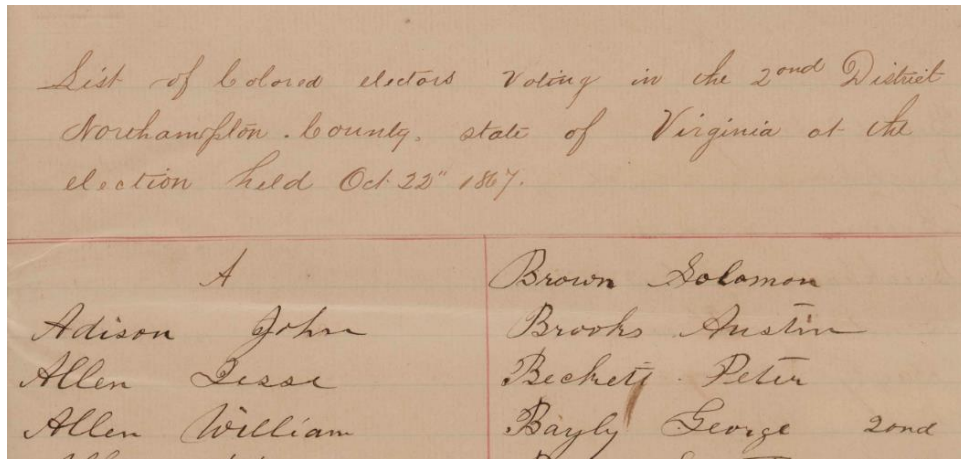 List of Colored electors Voting in the 2nd District
Northampton County. state of Virginia at the
election held Oct 22" 1867.
A
Adison John
Allen Jesse
Allen William
Brown Solomon
Brooks Austin
Beckett Peter
Bayly George 2nd